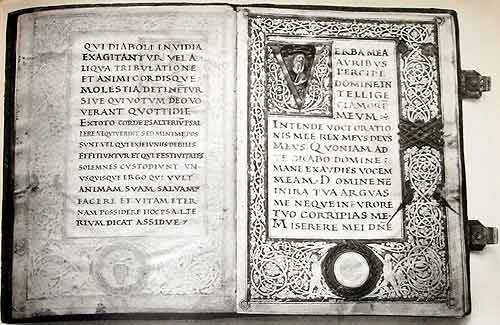 QVI DIABOLI INVIDIA
EXAGITANTVR VEL A
LIQVA TRIBVLATIONE
ET ANIMI CORDISQVE
MOLESTIA DETINETVR
SIVE QVI VOTVM DEO VO
VERANT QVOTTIDIE
EX TOTO CORDE PSALTERIV PSAL
LERE NEQVIVERINT SED MINIME POS
SVNT VEL QVI EX IEIVNIIS DEBILES
EFFITIVNTVR ET QVI FESTIVITATES
SOLEMNES CVSTODIVNT VN
VSQVISQVE ERGO QVI VVLT
ANIMAM SVAM SALVAM
FACERE ET VITAM ETER
NAM POSSIDERE HOC PSALTE
RIVM DICAT ASSIDVE
V ERBA MEA
AVRIBVS
PERCIPE
DOMINE IN
TELLIGE
CLAMORE
MEVM
INTENDE VOCI ORATIO
NIS MEE REX MEVS DEVS
MEVS. QVONIAM AD
TE ORABO DOMINE:
MANE EXAVDIES VOCEM
MEAM. DOMINE NE
IN IRA TVA ARGVAS
ME NEQVE IN FVRORE
TVO CORRIPIAS ME
MISERERE MEI DNE